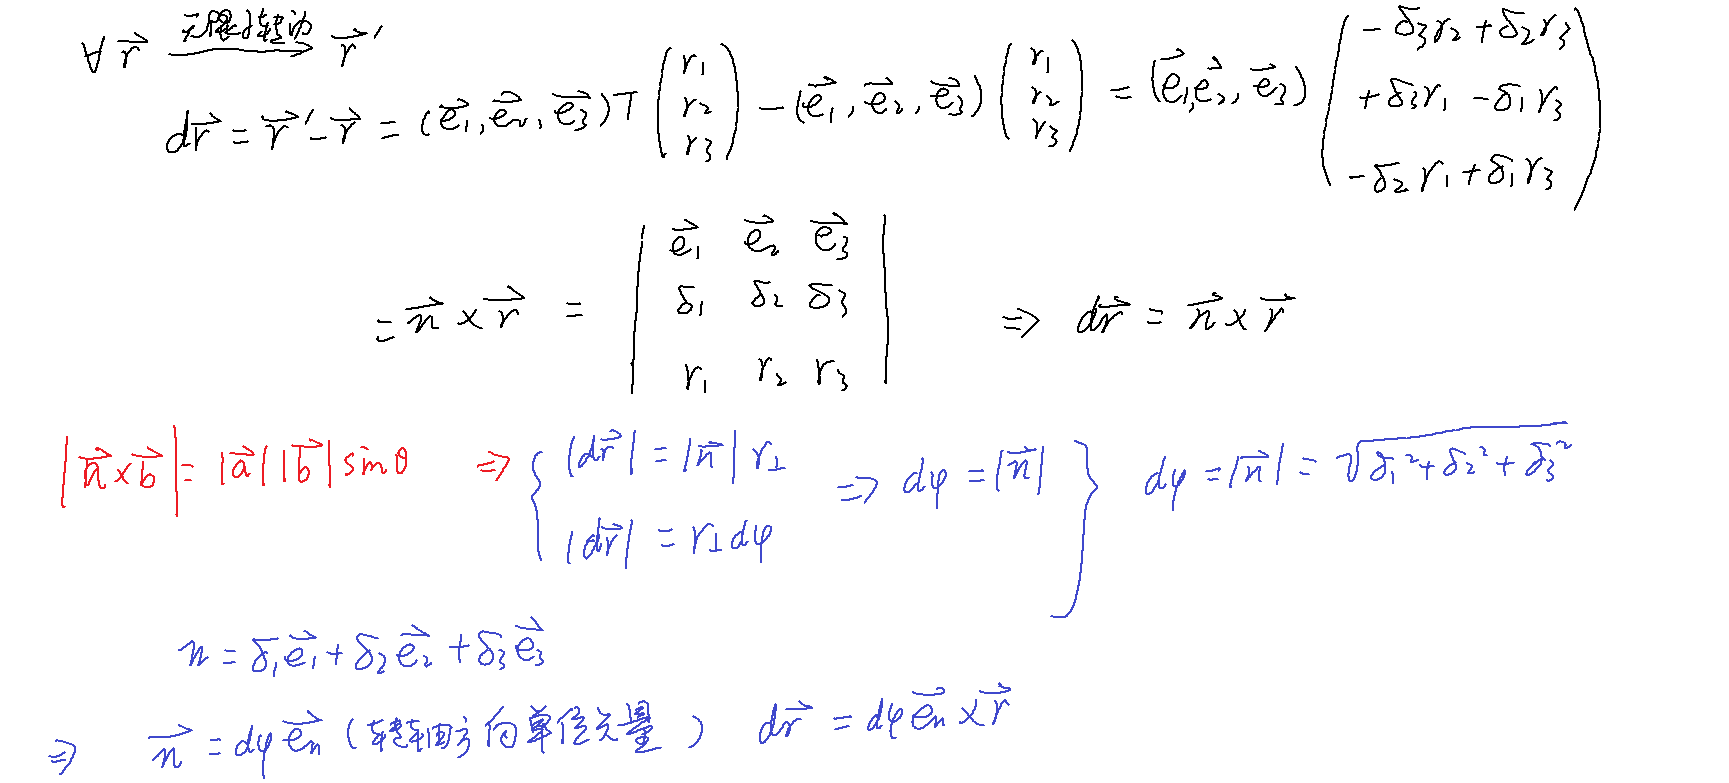 ∀ r⃗ 无限小转动→ r⃗ ′
dr⃗ = r⃗ ′ - r⃗ = (e⃗₁, e⃗₂, e⃗₃) T (r₁ r₂ r₃) - (e⃗₁, e⃗₂, e⃗₃) (r₁ r₂ r₃) = (e⃗₁, e⃗₂, e⃗₃) (-δ₃r₂ + δ₂r₃ +δ₃r₁ - δ₁r₃ -δ₂r₁ + δ₁r₃)
= n⃗ × r⃗ = | e⃗₁ e⃗₂ e⃗₃ δ₁ δ₂ δ₃ r₁ r₂ r₃ | ⇒ dr⃗ = n⃗ × r⃗
|a⃗ × b⃗| = |a⃗| |b⃗| sinθ ⇒ { |dr⃗| = |n⃗| r⊥ |dr⃗| = r⊥dφ ⇒ dφ = |n⃗| } dφ = |n⃗| = √(δ₁² + δ₂² + δ₃²)
n = δ₁e⃗₁ + δ₂e⃗₂ + δ₃e⃗₃
⇒ n⃗ = dφ e⃗n (转轴方向单位矢量) dr⃗ = dφ e⃗n × r⃗